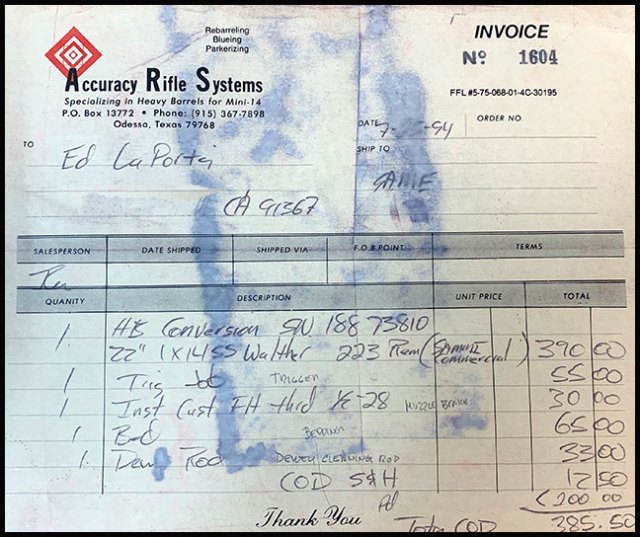 Rebarreling
Blueing
Parkerizing
INVOICE
Nº 1604
Accuracy Rifle Systems
Specializing in Heavy Barrels for Mini-14
P.O. Box 13772 • Phone: (915) 367-7898
Odessa, Texas 79768
FFL #5-75-068-01-4C-30195
DATE 94 ORDER NO.
TO SHIP TO
Ed LaPorta SAME
CA 91367
SALESPERSON DATE SHIPPED SHIPPED VIA F.O.B. POINT TERMS
QUANTITY DESCRIPTION UNIT PRICE TOTAL
1 HB Conversion SN 188 73810
22" 1X14 SS Walther 223 Rem (SAMMI Commercial) 390 00
1 Trig Job TRIGGER 55 00
1 Inst Cust FH thrd 1/2-28 MUZZLE BRAKE 30 00
1 Bed BEDDING 65 00
1 Dewy Rod DEWEY CLEANING ROD 33 00
COD S&H 12 50
Pd <200 00
Thank You Total COD 385.50